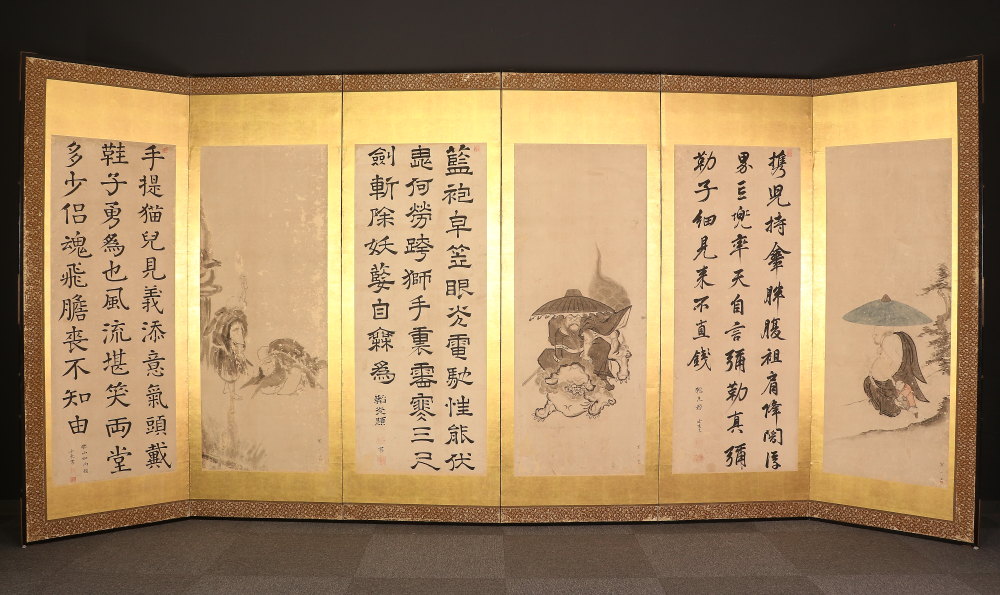 携児持傘胖腹袒肩降閻浮
界巨兜率天自言彌勒真彌
勒子細見来不直錢
藍袍皁笠眼光電馳性能伏
虎何勞跨獅手裏霜寒三尺
劍斬除妖孽自為
手提猫兒見義添意氣頭戴
鞋子勇為也風流堪笑両堂
多少侶魂飛膽喪不知由